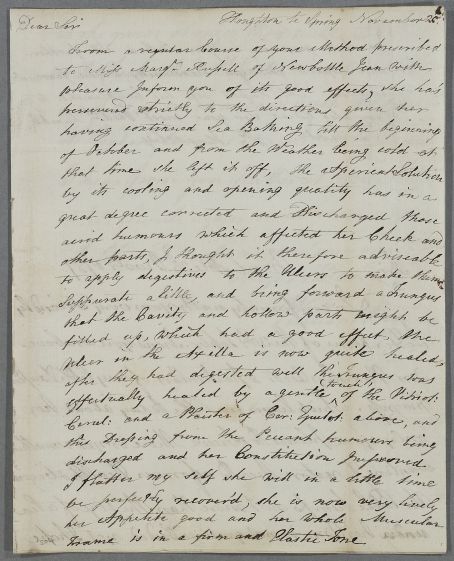 Dear Sir Houghton le Spring November 26
From a regular Course of your Method prescribed
to Miss Marg.t Russell of Newbottle I can with
pleasure Inform you of its good effects, she has
persevered strictly to the directions given her
having continued Sea Bathing till the begining
of October and from the Weather being cold at
that time she left it off, the Aperient Solution
by its cooling and opening quality has in a
great degree corrected and Discharged those
acrid humours which affected her Cheek and
other parts, I thought it therefore adviseable
to apply degestives to the Ulcers to make them
Suppurate a little, and bring forward a Fungus
that the Cavity and hollow parts might be
filled up, which had a good effect, the
Ulcer in the Axilla is now quite healed,
after they had digested well the Fungus was
effectually healed by a gentle touch of the Vitriol:
Cerul: and a Plaister of Cer: Epulot: above, and
this Dressing from the Peccant humours being
discharged and her Constitution Improved
I flatter my self she will in a little time
be perfectly recover'd, she is now very lively
her Appetite good and her whole Muscular
Frame is in a firm and Elastic Tone